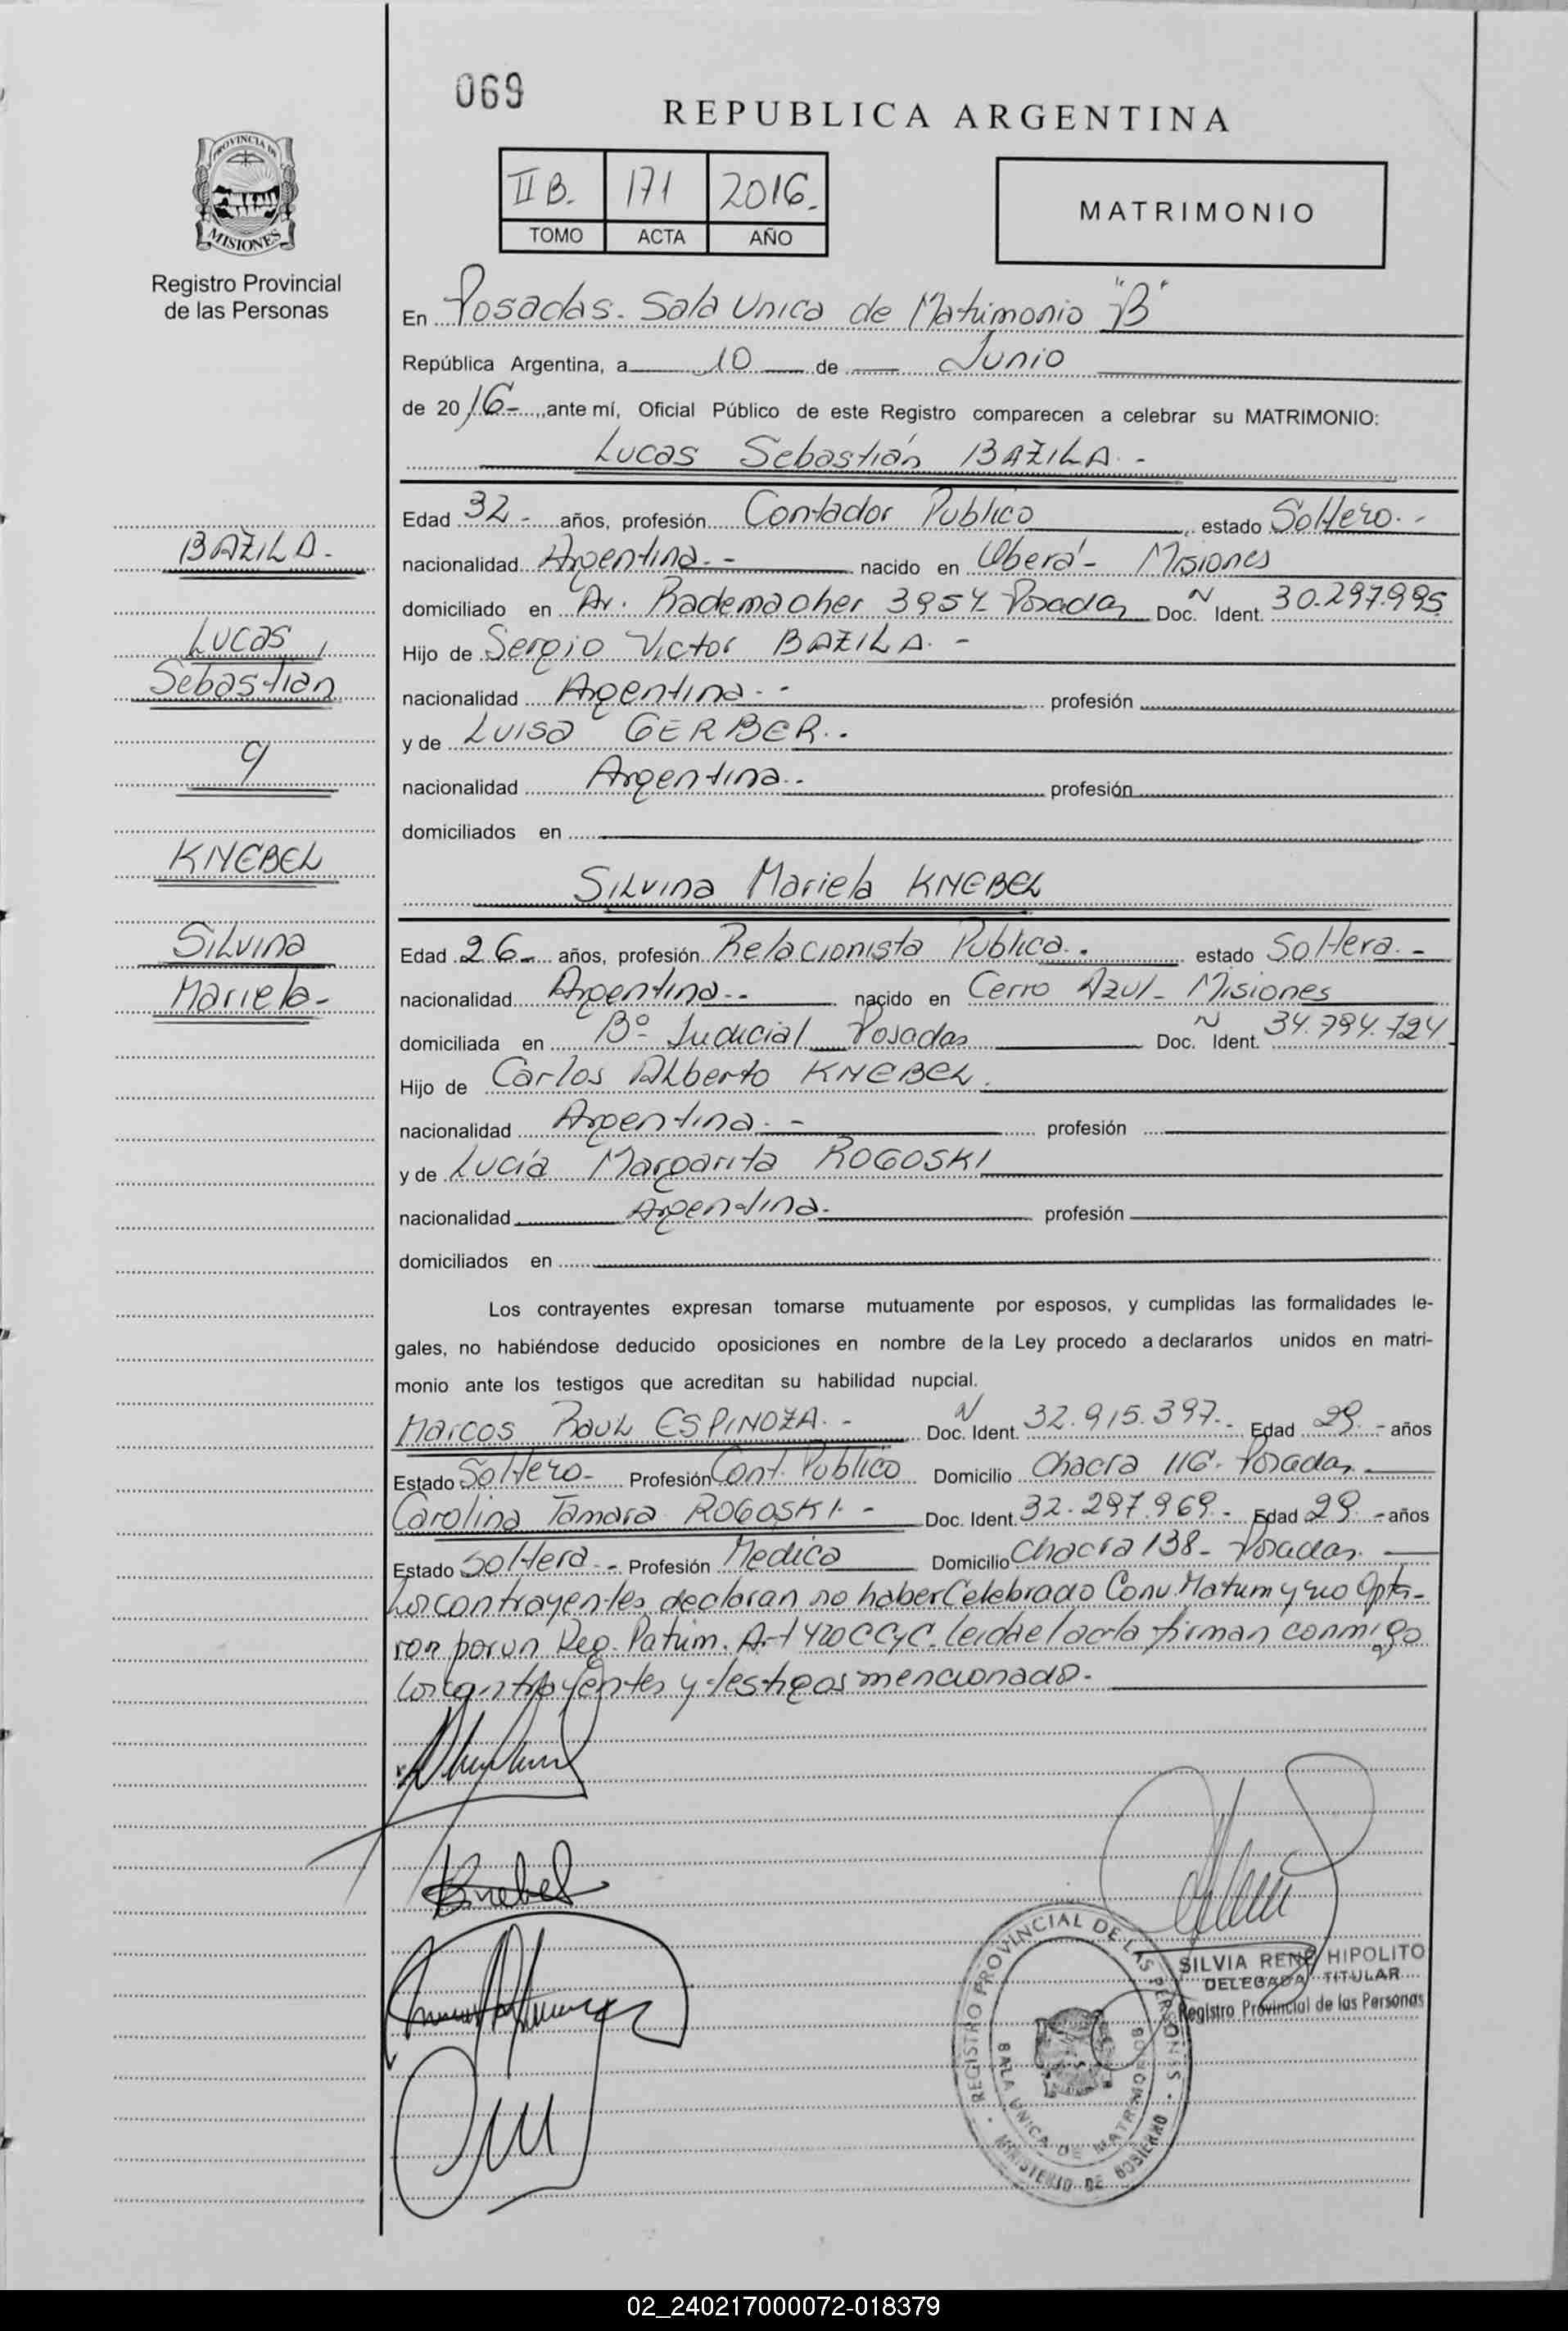 069
REPUBLICA ARGENTINA
PROVINCIA DE
MISIONES
Registro Provincial
de las Personas
II B. 171 2016.
TOMO ACTA AÑO
MATRIMONIO
En Posadas. Sala Unica de Matrimonio "B"
República Argentina, a 10 de Junio
de 2016-, ante mí, Oficial Público de este Registro comparecen a celebrar su MATRIMONIO:
Lucas Sebastián BAZILA.-
Edad 32- años, profesión Contador Publico estado Soltero.-
BAZILA.-
nacionalidad Argentina.- nacido en Oberá- Misiones
domiciliado en Av. Rademacher 3954 Posadas Doc. N Ident. 30.297.995
Lucas
Hijo de Sergio Victor BAZILA.-
Sebastián
nacionalidad Argentina.- profesión
y de Luisa GERBER.-
y
nacionalidad Argentina.- profesión
domiciliados en
KNEBEL
Silvina Mariela KNEBEL
Silvina
Edad 26- años, profesión Relacionista Publica. estado Soltera.-
Mariela-
nacionalidad Argentina.- nacido en Cerro Azul- Misiones
domiciliada en Bº Judicial Posadas Doc. N Ident. 34.784.724
Hijo de Carlos Alberto KNEBEL.
nacionalidad Argentina.- profesión
y de Lucía Margarita ROGOSKI
nacionalidad Argentina.- profesión
domiciliados en
Los contrayentes expresan tomarse mutuamente por esposos, y cumplidas las formalidades le-
gales, no habiéndose deducido oposiciones en nombre de la Ley procedo a declararlos unidos en matri-
monio ante los testigos que acreditan su habilidad nupcial.
Marcos Raul ESPINOZA.- Doc. N Ident. 32.915.397.- Edad 29.- años
Estado Soltero- Profesión Cont. Publico Domicilio Chacra 116- Posadas
Carolina Tamara ROGOSKI.- Doc. Ident. 32.297.969- Edad 29.- años
Estado Soltera.- Profesión Medica Domicilio Chacra 138- Posadas.
Los contrayentes declaran no haber Celebrado Conv. Matrim y no Opta-
ron por un Reg. Patrim. Art 420 CCyC. leida el acta firman conmigo
los contrayentes y testigos mencionado.-
Knebel
SILVIA RENE HIPOLITO
DELEGADA TITULAR
Registro Provincial de las Personas
REGISTRO PROVINCIAL DE LAS PERSONAS
SALA UNICA DE MATRIMONIO
MINISTERIO DE GOBIERNO
02_240217000072-018379